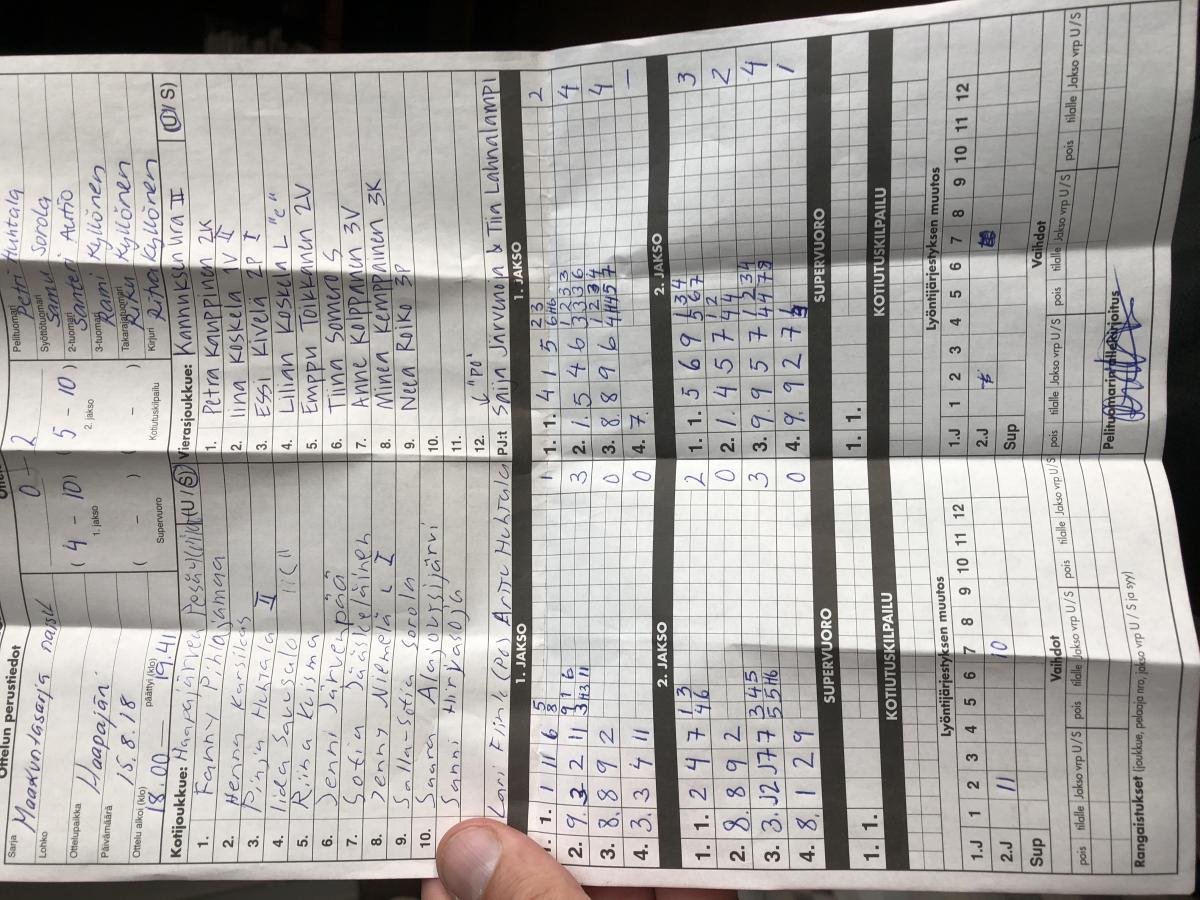 Ottelun perustiedot
Sarja
Maakuntasarja naiset
Lohko
Ottelupaikka
Haapajärvi
Päivämäärä
15.8.18
Ottelu alkoi (klo) päättyi (klo)
18.00 19.41
0 - 2
( 4 - 10 ) ( 5 - 10 )
1. jakso 2. jakso
( - ) ( - )
Supervuoro Kotiutuskilpailu
Pelituomari Petri Huntala
Syöttötuomari Samu Sorola
2-tuomari Santeri Autio
3-tuomari Rami Kyllönen
Takarajatuomari Riku Kyllönen
Kirjuri Riha Kyllönen
Kotijoukkue: Haapajärven Pesäkiilat (U / S)
1. Fanny Pihlajamaa
2. Henna Kesilkas
3. Pinja Huhtala II
4. Iida Savusalo "C"
5. Riina Kuisma
6. Jenni Järvenpää
7. Sofia Jääskeläinen
8. Jenny Niemelä L I
9. Salla-Sofia Sorola
10. Saana Alajoutsijärvi
Sanni Hirvasoja
Lari Flink (PO) Arttu Huhtala
Vierasjoukkue: Kannuksen Ura II (U / S)
1. Petra Kamppinen 2K
2. Iina Kiskela 1V II
3. Essi Kivelä 2P I
4. Lilian Koskela L "C"
5. Emppu Toikkanen 2V
6. Tiina Sommero S
7. Anne Kolppanen 3V
8. Minea Kemppainen 3K
9. Neea Roiko 3P
10.
11.
12. "PO"
PJ:t Saija Järvunoin & Tiia Lahnalampi
1. JAKSO
1. 1. 1 11 6 5 8 1
2. 9. 3 2 11 3
3. 8. 8 9 2 0
4. 3. 3 4 11 0
2. JAKSO
1. 1. 2 4 7 1 3 4 6 2
2. 8. 8 9 2 0
3. 3. J2 J7 7 3 4 5 3
4. 8. 1 2 9 0
SUPERVUORO
1. 1.
KOTIUTUSKILPAILU
Lyöntijärjestyksen muutos
1.J 1 2 3 4 5 6 7 8 9 10 11 12
2.J 11 10
Sup
Vaihdot
pois tilalle Jakso vrp U / S pois tilalle Jakso vrp U / S pois tilalle Jakso vrp U / S
Rangaistukset (joukkue, pelaaja nro, jakso vrp U / S ja syy)
1. JAKSO
1. 1. 4 1 5 2 3 2
2. 1. 5 4 6 1 2 3 3 3 3 3 6 4
3. 8. 8 9 6 4
4. 7. –
2. JAKSO
1. 1. 5 6 9 1 3 4 5 6 7 3
2. 1. 4 5 7 1 2 4 4 2
3. 9. 9 5 7 1 2 3 4 4 4 7 8 4
4. 9. 9 2 7 1
SUPERVUORO
1. 1.
KOTIUTUSKILPAILU
Lyöntijärjestyksen muutos
1.J 1 2 3 4 5 6 7 8 9 10 11 12
2.J
Sup
Vaihdot
pois tilalle Jakso vrp U / S pois tilalle Jakso vrp U / S pois tilalle Jakso vrp U / S
Pelituomarin allekirjoitus